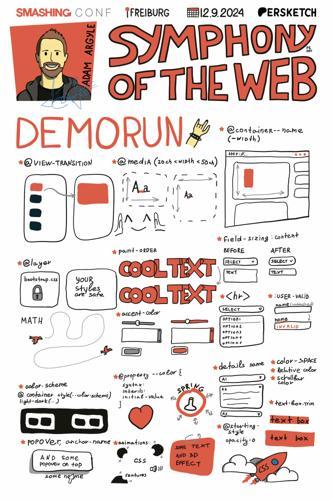 SMASHING CONF
FREIBURG
12.9.2024
PERSKETCH
ADAM ARGYLE
SYMPHONY
OF THE WEB
DEMORUN
@container--name
(-width)
@VIEW-TRANSITION
@media (20ch <width <50ch)
Aa
Aa
field-sizing:content
BEFORE
AFTER
SELECT
SELECT
TEXT
TEXT
@layer
bootstrap.css
YOUR
STYLES
are safe
paint-ORDER
COOL TEXT
COOL TEXT
MATH
accent-color
<hr>
SELECT
OPTION1
OPTION2
OPTION3
OPTION4
:USER-VALID
NAME
INVALID
color-scheme
@container style(--color-scheme)
light-dark(..)
@property --color {
syntax:
inherits:
initial-value:
SPRING
details name
A1
color-SPACE
Relative color
scrollbar
color
text-Box-trim
text box
text box
POPOVER, anchor-name
AND SOME
POPOVER on top
some name
animations
CSS
SOME TEXT
AND 3D
EFFECT
@starting-
style
opacity:0
CSS